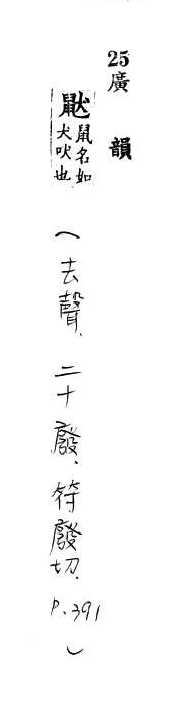 25廣韻
鼣鼠名如
犬吠也
(去聲、二十廢、符廢切、P.391)